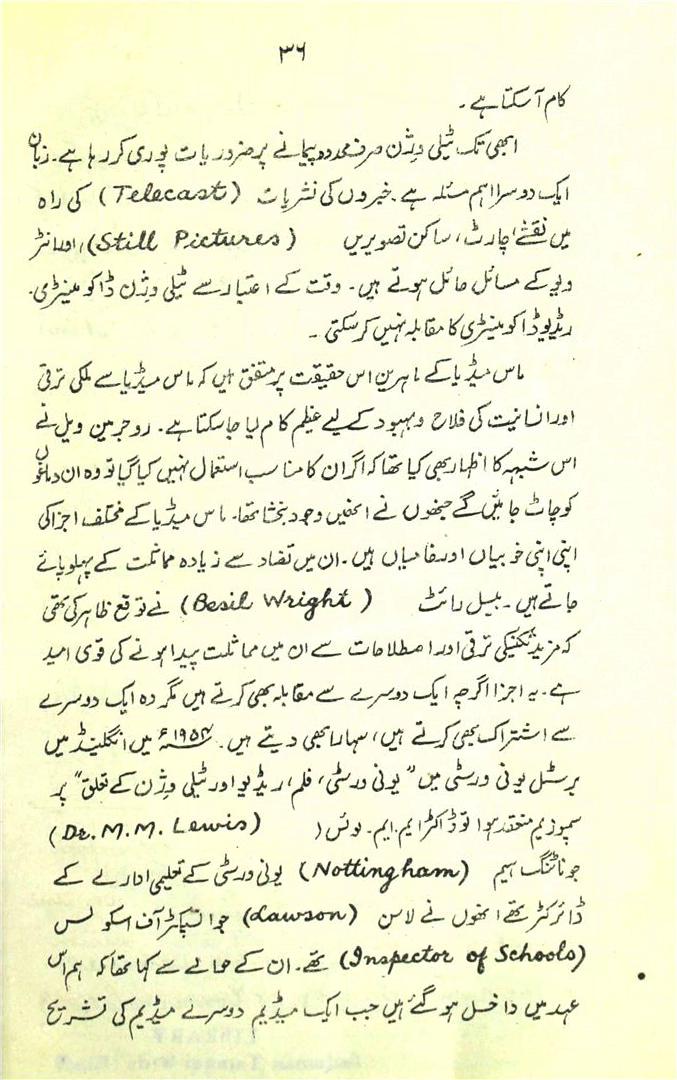 ۳۶
کام آ سکتا ہے۔
ابھی تک ٹیلی وِژن صرف محدود پیمانے پر ضروریات پوری کر رہا ہے۔ زبان
ایک دوسرا اہم مسئلہ ہے۔ خبروں کی نشریات (Telecast) کی راہ
میں نقشے، چارٹ، ساکن تصویریں (Still Pictures)، اور انٹر
ویو کے مسائل حائل ہوتے ہیں۔ وقت کے اعتبار سے ٹیلی وِژن ڈاکومینٹری۔
ریڈیو ڈاکومینٹری کا مقابلہ نہیں کر سکتی۔
ماس میڈیا کے ماہرین اس حقیقت پر متفق ہیں کہ ماس میڈیا سے ملکی ترقی
اور انسانیت کی فلاح و بہبود کے لیے عظیم کام لیا جا سکتا ہے۔ روجر مین ویل نے
اس شبہہ کا اظہار بھی کیا تھا کہ اگر ان کا مناسب استعمال نہیں کیا گیا تو وہ ان دماغوں
کو چاٹ جائیں گے جنھوں نے انھیں وجود بخشا تھا۔ ماس میڈیا کے مختلف اجزا کی
اپنی اپنی خوبیاں اور خامیاں ہیں۔ ان میں تضاد سے زیادہ مماثلت کے پہلو پائے
جاتے ہیں۔ بیسل رائٹ (Besil Wright) نے توقع ظاہر کی تھی
کہ مزید تکنیکی ترقی اور اصطلاحات سے ان میں مماثلت پیدا ہونے کی قوی امید
ہے۔ یہ اجزا اگرچہ ایک دوسرے سے مقابلہ بھی کرتے ہیں مگر وہ ایک دوسرے
سے اشتراک بھی کرتے ہیں، سہارا بھی دیتے ہیں۔ ۱۹۵۴ء میں انگلینڈ میں
برسٹل یونی ورسٹی میں "یونی ورسٹی، فلم، ریڈیو اور ٹیلی وِژن کے تعلق" پر
سمپوزیم منعقد ہوا تو ڈاکٹر ایم۔ ایم۔ لوئس (Dr. M. M. Lewis)
جو ناٹنگ ہیم (Nottingham) یونی ورسٹی کے تعلیمی ادارے کے
ڈائرکٹر تھے انھوں نے لاسن (Lawson) جو انسپکٹر آف اسکولس
(Inspector of Schools) تھے۔ ان کے حوالے سے کہا تھا کہ ہم اس
عہد میں داخل ہو گئے ہیں جب ایک میڈیم دوسرے میڈیم کی تشریح